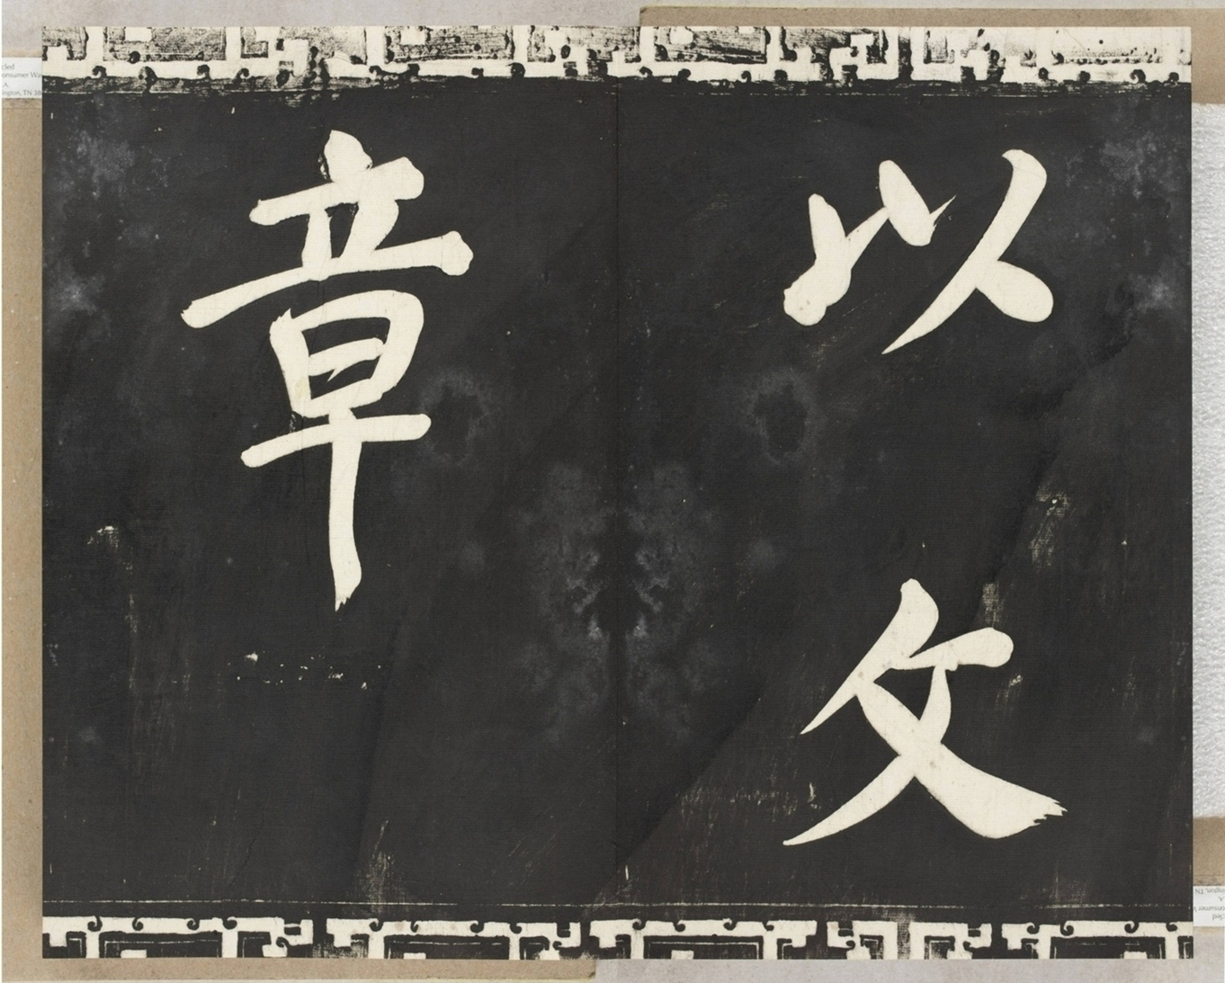 以文
章